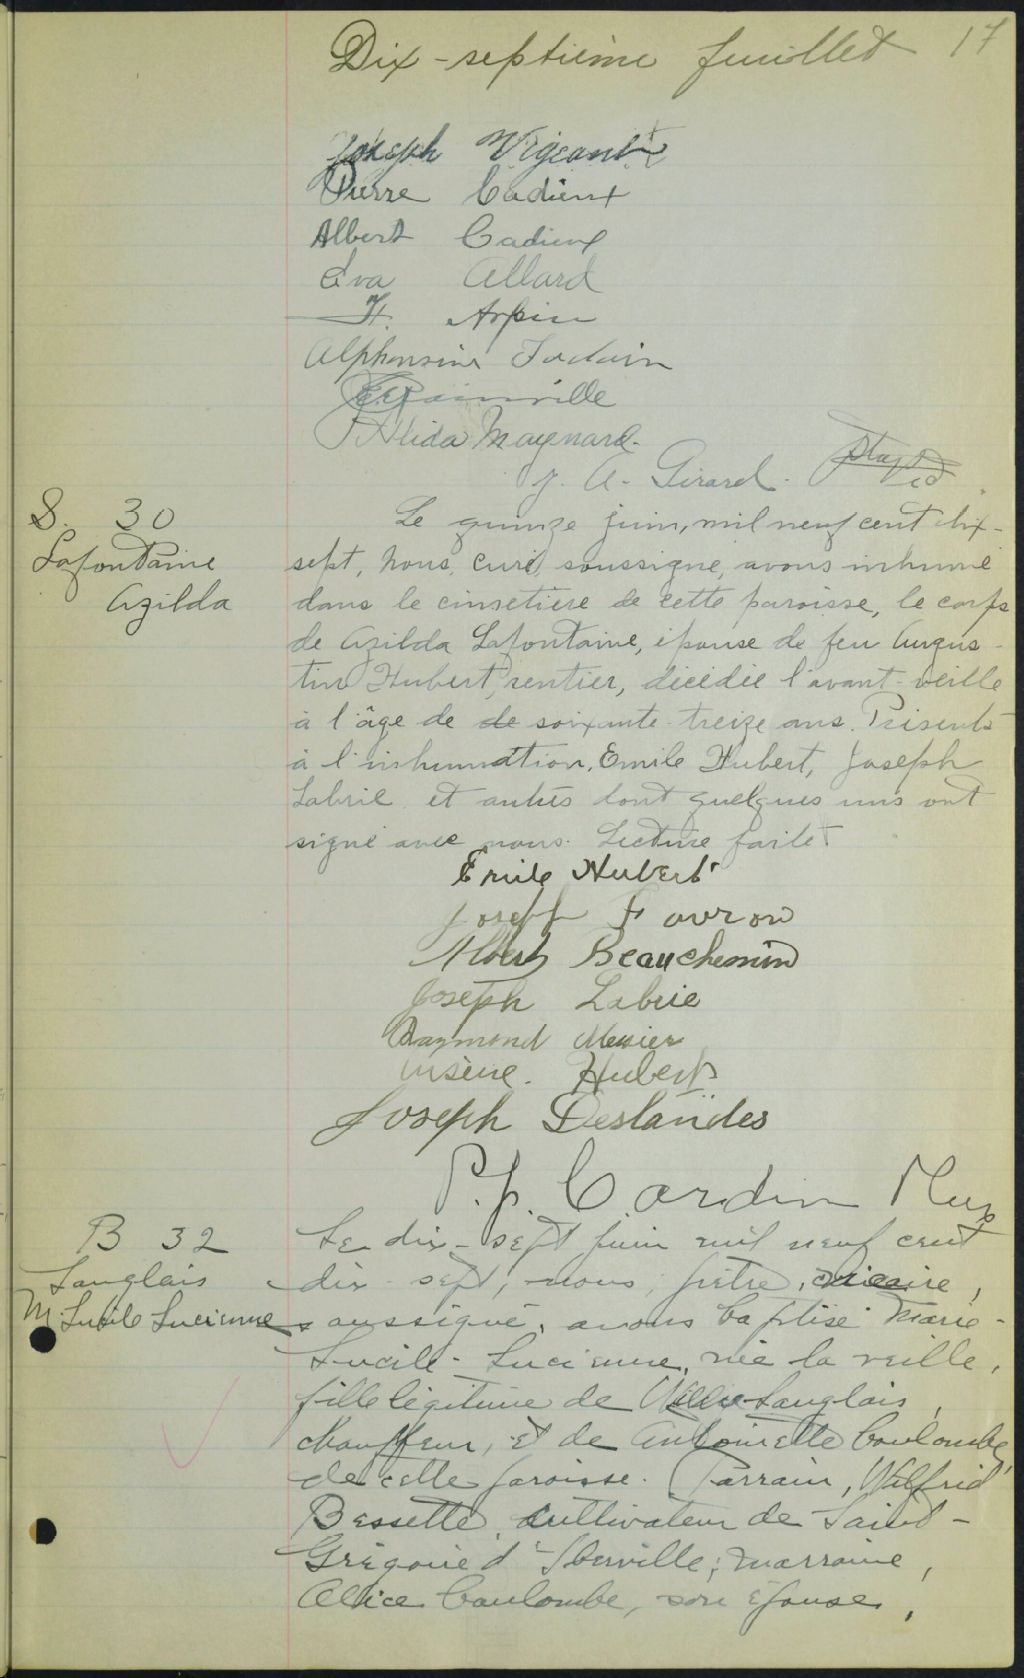 Dix-septième feuillet 17
Joseph Vigeant
Pierre Cadieux
Albert Cadieux
Éva Allard
H. Arpin
Alphonsine Jodoin
Rainville
Alida Maynard
J. A. Girard.
S. 30
Lafontaine
Azilda
Le quinze juin, mil neuf cent dix-
sept, Nous, curé, soussigné, avons inhumé
dans le cimetière de cette paroisse, le corps
de Azilda Lafontaine, épouse de feu Augus-
tin Hubert, rentier, décédée l'avant-veille
à l'âge de de soixante-treize ans. Présents
à l'inhumation, Emile Hubert, Joseph
Labrie et autres dont quelques uns ont
signé avec nous. Lecture faite
Emile Hubert
Joseph Favron
Albert Beauchemin
Joseph Labrie
Raymond Messier
Arsène. Hubert
Joseph Deslandes
P. J. Cardin
B 32
Langlais
M. Lucile Lucienne
Le dix-sept juin mil neuf cent
dix-sept, nous, prêtre, vicaire,
soussigné, avons baptisé Marie-
Lucile-Lucienne, née la veille,
fille légitime de Willie Langlais,
chauffeur, et de Antoinette Coulombe,
de cette paroisse. Parrain, Wilfrid
Bessette, cultivateur de Saint-
Grégoire d'Iberville; marraine,
Alice Coulombe, son épouse,